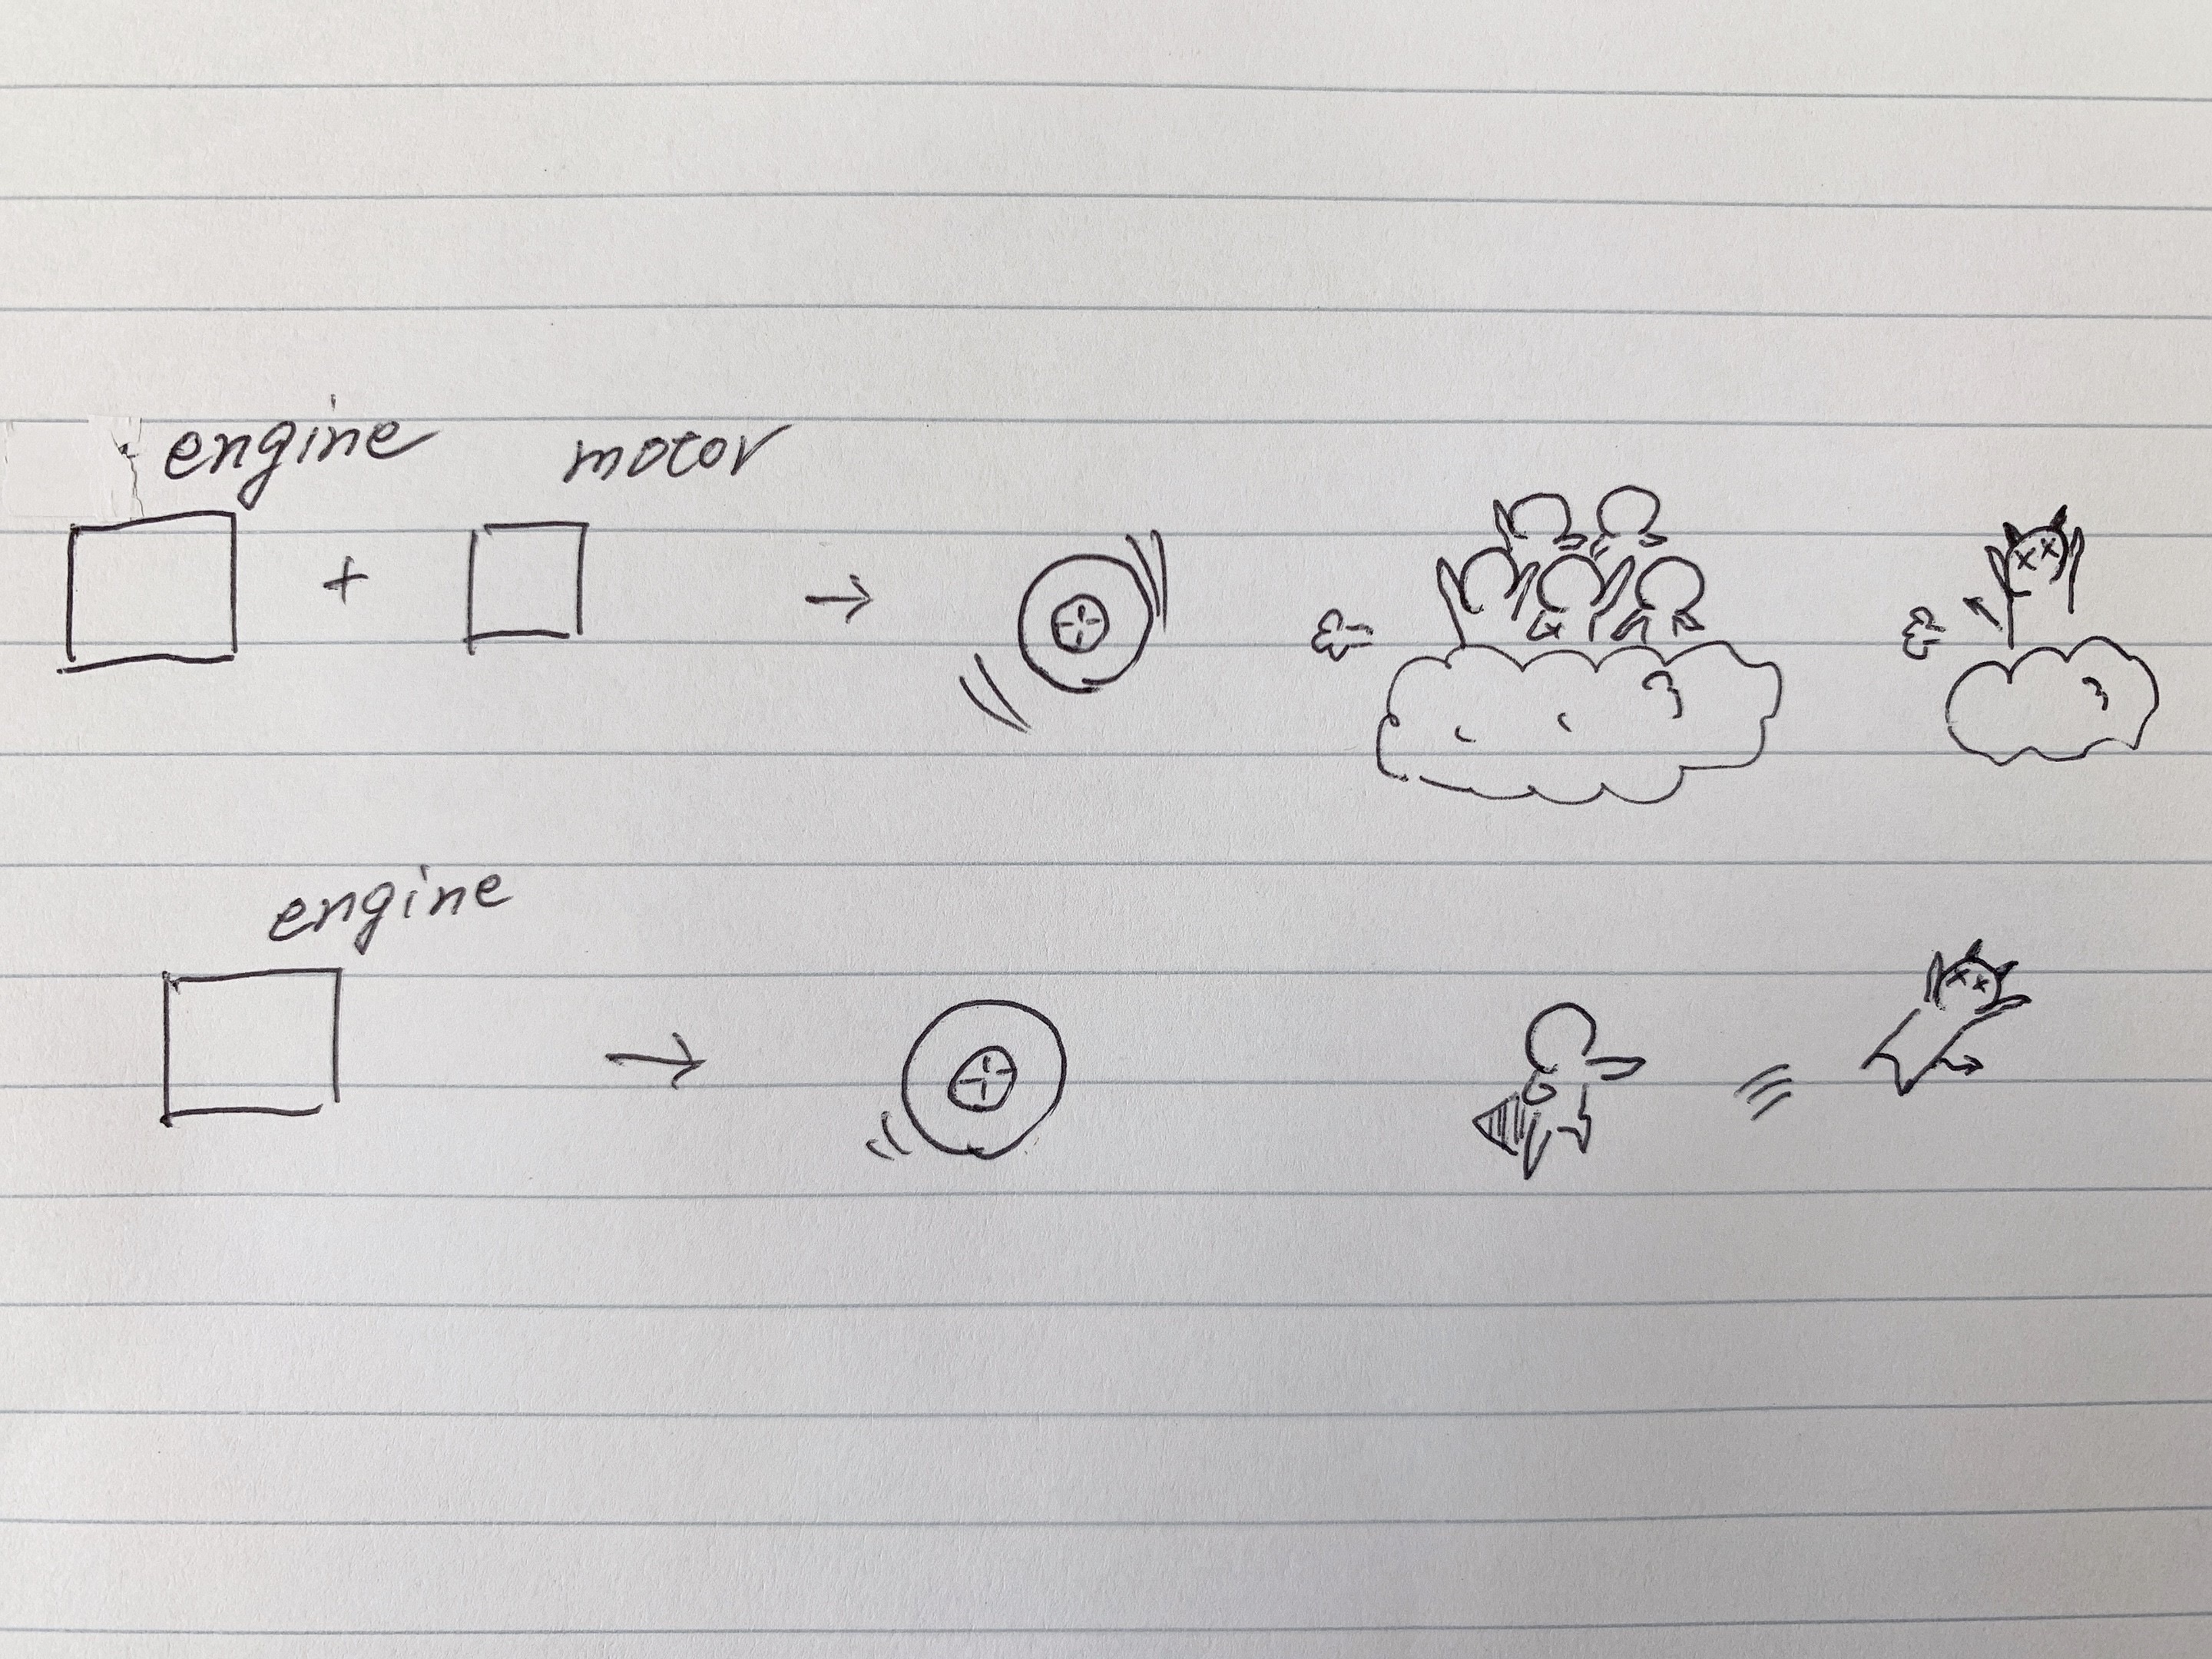 engine motor
+ →
engine
→